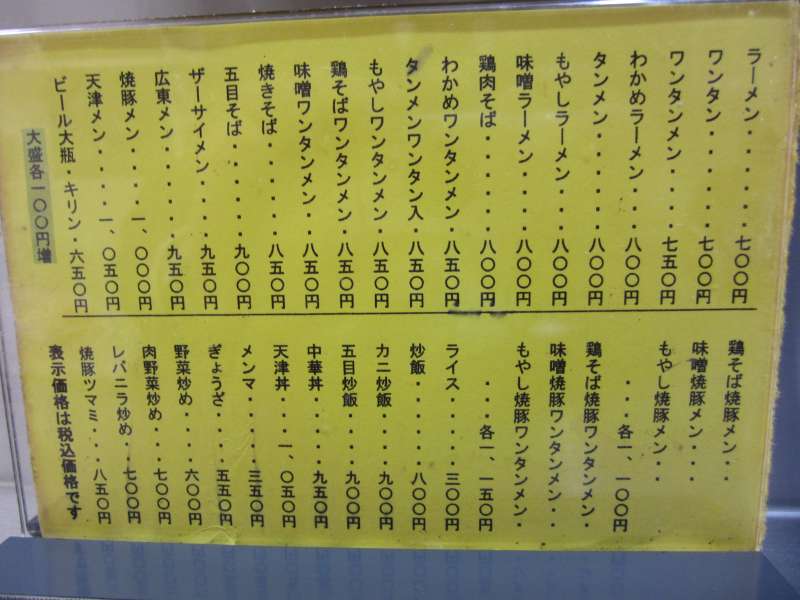 ラーメン・・・・・・七〇〇円
ワンタン・・・・・・七〇〇円
ワンタンメン・・・・七五〇円
わかめラーメン・・・八〇〇円
タンメン・・・・・・八〇〇円
もやしラーメン・・・八〇〇円
味噌ラーメン・・・・八〇〇円
鶏肉そば・・・・・・八〇〇円
わかめワンタンメン・八五〇円
タンメンワンタン入・八五〇円
もやしワンタンメン・八五〇円
鶏そばワンタンメン・八五〇円
味噌ワンタンメン・・八五〇円
焼きそば・・・・・・八五〇円
五目そば・・・・・・九〇〇円
ザーサイメン・・・・九五〇円
広東メン・・・・・・九五〇円
焼豚メン・・・・一、〇〇〇円
天津メン・・・・一、〇五〇円
ビール大瓶・キリン・六五〇円
大盛各一〇〇円増
鶏そば焼豚メン・・
味噌焼豚メン・・・
もやし焼豚メン・・
・・・各一、一〇〇円
鶏そば焼豚ワンタンメン・
味噌焼豚ワンタンメン・・
もやし焼豚ワンタンメン・
・・・各一、一五〇円
ライス・・・・・三〇〇円
炒飯・・・・・・八〇〇円
カニ炒飯・・・・九〇〇円
五目炒飯・・・・九〇〇円
中華丼・・・・・九五〇円
天津丼・・・一、〇五〇円
メンマ・・・・・三五〇円
ぎょうざ・・・・五五〇円
野菜炒め・・・・六〇〇円
肉野菜炒め・・・七〇〇円
レバニラ炒め・・七〇〇円
焼豚ツマミ・・・八五〇円
表示価格は税込価格です